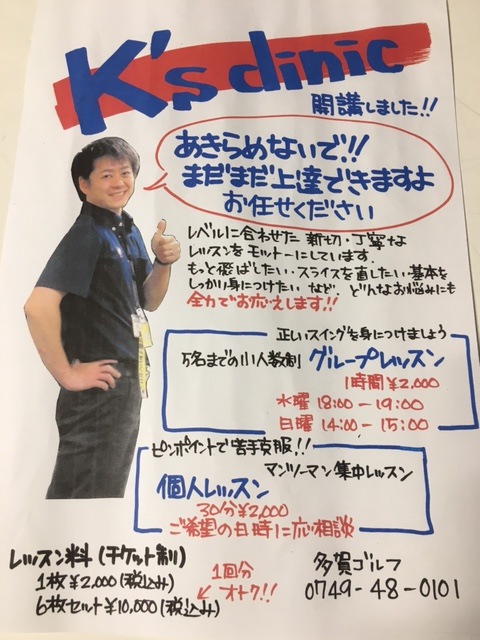 K's clinic
開講しました!!
あきらめないで!!
まだまだ上達できますよ
お任せください
レベルに合わせた 親切・丁寧な
レッスンをモットーにしています.
もっと飛ばしたい・スライスを直したい・基本を
しっかり身につけたい など、どんなお悩みにも
全力でお応えします!!
正しいスイングを身につけましょう
5名までの小人数制 グループレッスン
1時間 ¥2,000
水曜 18:00-19:00
日曜 14:00-15:00
ピンポイントで苦手克服!!
マンツーマン集中レッスン
個人レッスン
30分¥2,000
ご希望の日時に応相談
レッスン料 (チケット制)
1枚¥2,000(税込み)
6枚セット¥10,000(税込み)
1回分
オトク!!
多賀ゴルフ
0749-48-0101